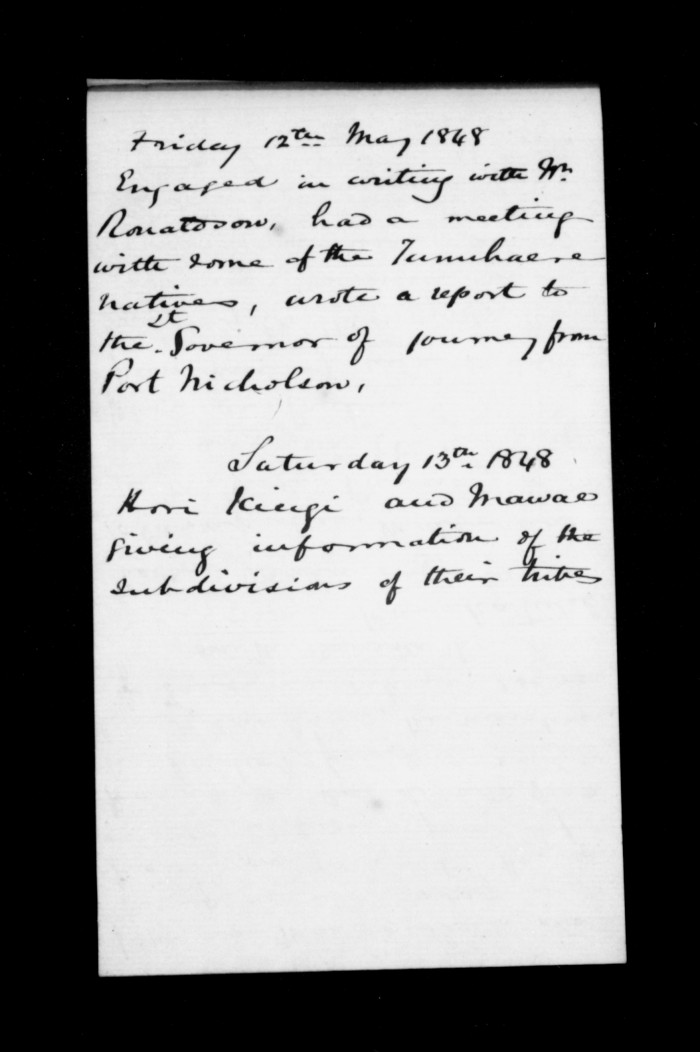 Friday 12th May 1848
Engaged in writing with Mr
Ronaldson, had a meeting
with some of the Tunuhaere
natives, wrote a report to
the Lt. Governor of journey from
Port Nicholson,
Saturday 13th 1848
Hori Kingi and Mawae
giving information of the
subdivisions of their tribes